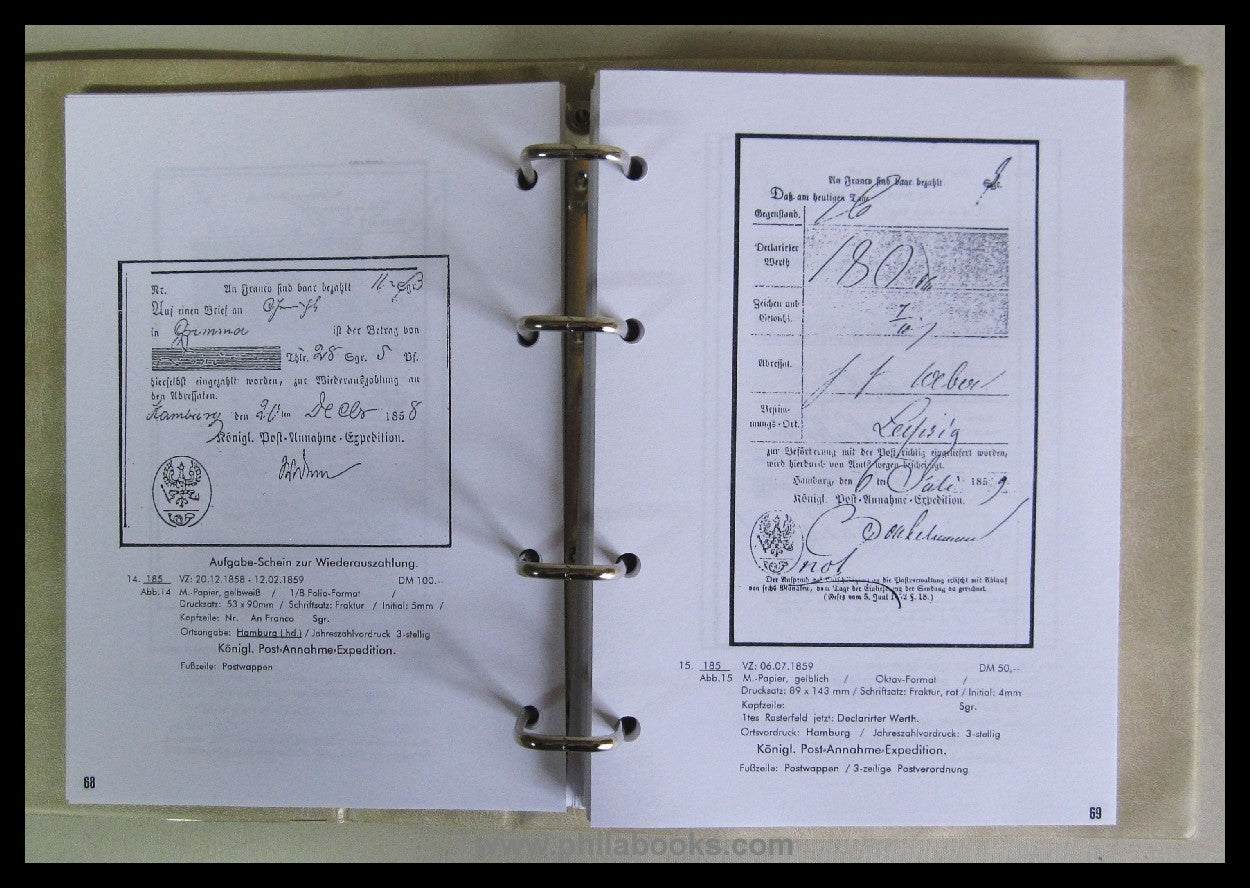 Nr. An Franco sind baar bezahlt
Auf einen Brief an
in Grimma ist der Betrag von
Thlr. 28 Sgr. 5 Pf.
hierselbst eingezahlt worden, zur Wiederauszahlung an
den Adressaten.
Hamburg den ten Decbr 1858
Königl. Post-Annahme-Expedition.
Aufgabe-Schein zur Wiederauszahlung.
14. 185 VZ: 20.12.1858 - 12.02.1859 DM 100.--
Abb.14 M.-Papier, gelbweiß / 1/8 Folio-Format /
Drucksatz: 53 x 90mm / Schriftsatz: Fraktur / Initial: 5mm /
Kopfzeile: Nr. An Franco Sgr.
Ortsangabe: Hamburg (hd.) / Jahreszahlvordruck 3-stellig
Königl. Post-Annahme-Expedition.
Fußzeile: Postwappen
68
An Franco sind baar bezahlt Sgr.
Daß am heutigen Tage
Gegenstand.
Declarirter
Werth 180
Zeichen und
Gewicht.
Adressat. Weber
Bestim-
mungs-Ort. Leipzig
zur Beförderung mit der Post richtig eingeliefert worden,
wird hierdurch von Amts wegen bescheinigt.
Hamburg, den 6 ten Juli 1859.
Königl. Post-Annahme-Expedition.
Der Anspruch auf Entschädigung an die Postverwaltung erlischt mit Ablauf
von sechs Monaten, vom Tage der Einlieferung der Sendung an gerechnet.
(Gesetz vom 5. Juni 1852 §. 18.)
15. 185 VZ: 06.07.1859 DM 50,--
Abb.15 M.-Papier, gelblich / Oktav-Format /
Drucksatz: 89 x 143 mm / Schriftsatz: Fraktur, rot / Initial: 4mm
Kopfzeile: Sgr.
1tes Rasterfeld jetzt: Declarirter Werth.
Ortsvordruck: Hamburg / Jahreszahlvordruck: 3-stellig
Königl. Post-Annahme-Expedition.
Fußzeile: Postwappen / 3-zeilige Postverordnung
69
www.philabooks.com